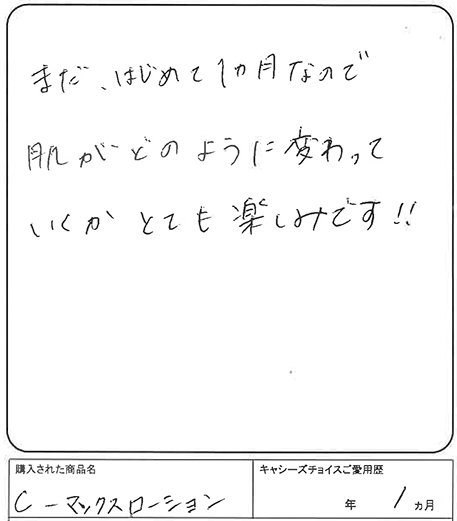 まだ、はじめて1ヵ月なので
肌がどのように変わって
いくかとても楽しみです!!
購入された商品名
キャシーズチョイスご愛用歴
C-マックスローション
年 1ヵ月